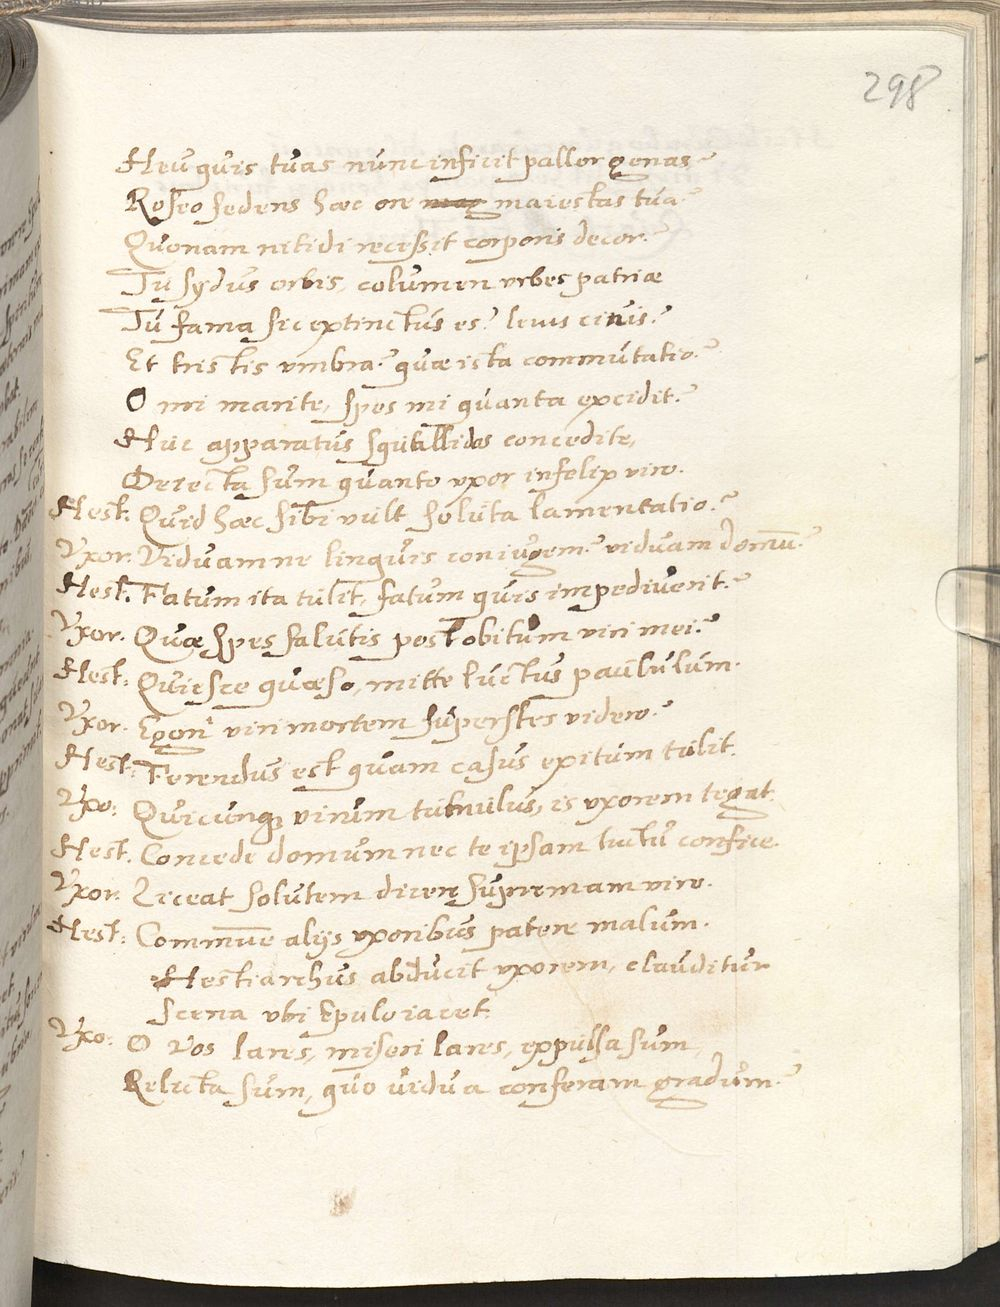 298
Heu quis tuas nunc inficit pallor genas?
Roseo sedens haec ore maiestas tua?
Quonam nitidi recessit corporis decor?
Tu sydus orbis, columen urbes patriae
Tu fama sic extinctus es? levis cinis?
Et tristis umbra? quae ista commutatio?
O mi marite, spes mi quanta excidit?
Huc apparatus squallidos concedite,
Deiecta sum quanto uxor infelix viro.
Hest: Quid haec sibi vult soluta lamentatio?
Uxor. Viduam ne linquis coniugem? viduam domū?
Hest. Fatum ita tulit, fatum quis impediverit?
Uxor. Quae spes salutis post obitum viri mei?
Hest: Quiesce quaeso, mitte luctus paululum.
Uxor. Egon' viri mortem superstes videro?
Hest: Ferendus est quem casus exitum tulit.
Uxo: Quicunq virum tumulus, is uxorem tegat.
Hest. Concede domum nec te ipsam luctu confice.
Uxor. Liceat salutem dicere supremam viro.
Hest: Commune alijs uxoribus patere malum.
Hestiarchus abducit uxorem, clauditur
scena ubi Epulo iacet.
Uxo: O vos lares, miseri lares, expulsa sum,
Relicta sum, quo vidua conferam gradum?